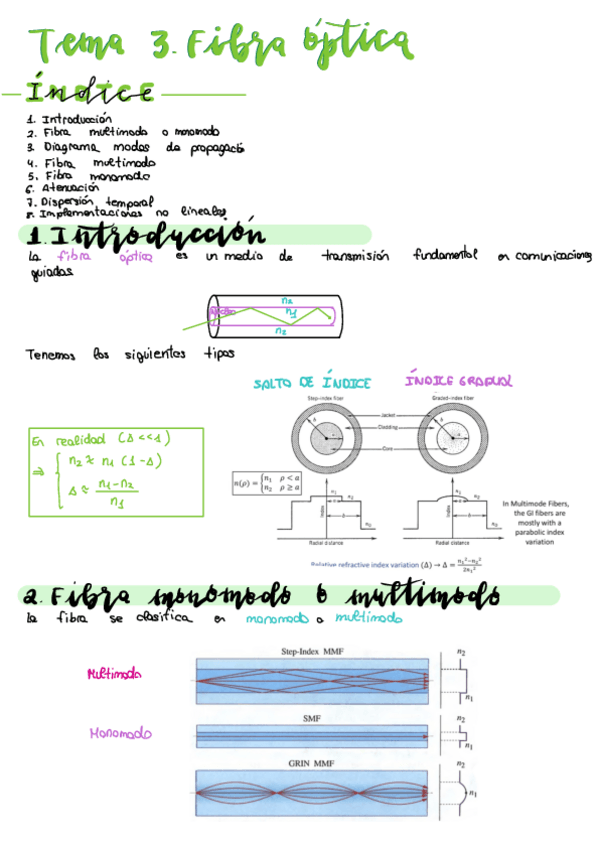 Tema 3. Fibra óptica
Índice
1. Introducción
2. Fibra multimodo o monomodo
3. Diagrama modos de propagació
4. Fibra multimodo
5. Fibra monomodo
6. Atenuación
7. Dispersión temporal
8. Implementaciones no lineales
1. Introducción
la fibra óptica es un medio de transmisión fundamental en comunicaciones
guiadas
n2
n1
n2
Tenemos los siguientes tipos
SALTO DE ÍNDICE
ÍNDICE GRADUAL
Step-index fiber
Graded-index fiber
Jacket
Cladding
Core
b
a
b
a
En realidad (Δ<<1)
⇒ { n2 ≈ n1 (1-Δ)
Δ ≈ (n1-n2)/n1
n(ρ) = { n1 ρ < a
n2 ρ ≥ a
Index
n1
n2
b
n0
Radial distance
Index
n1
n2
b
n0
Radial distance
In Multimode Fibers,
the GI fibers are
mostly with a
parabolic index
variation
Relative refractive index variation (Δ) → Δ = (n1²-n2²)/(2n1²)
2. Fibra monomodo o multimodo
la fibra se clasifica en monomodo o multimodo
Step-Index MMF
n2
Multimodo
n1
SMF
n2
Monomodo
n1
GRIN MMF
n2
n1